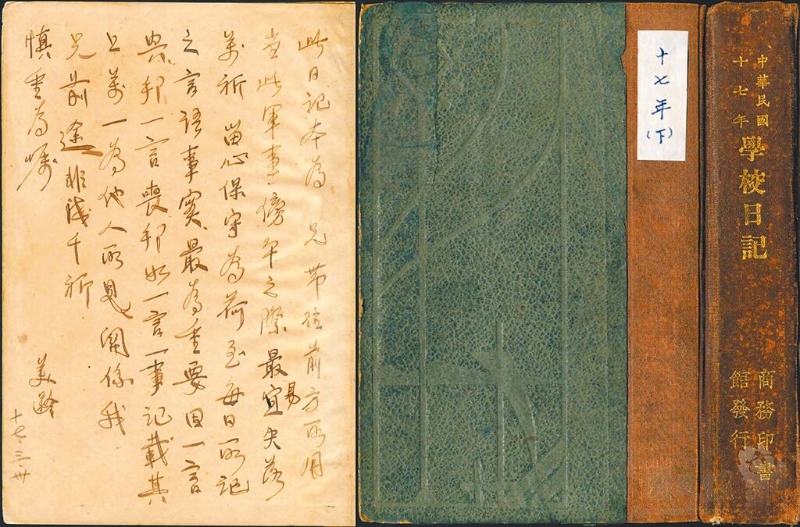 此日記本為 兄帶往前方所用
當此軍事傍午之際最宜失落
易
萬祈 留心保守為荷至每日所記
之言語事實最為重要因一言
興邦一言喪邦如一言一事記載其
上萬一為他人所見關係我
兄前途非淺千祈
慎重為囑
美齡
十七、三、卅
十七年(下)
中華民國
十七年
學校日記
商務印書
館發行